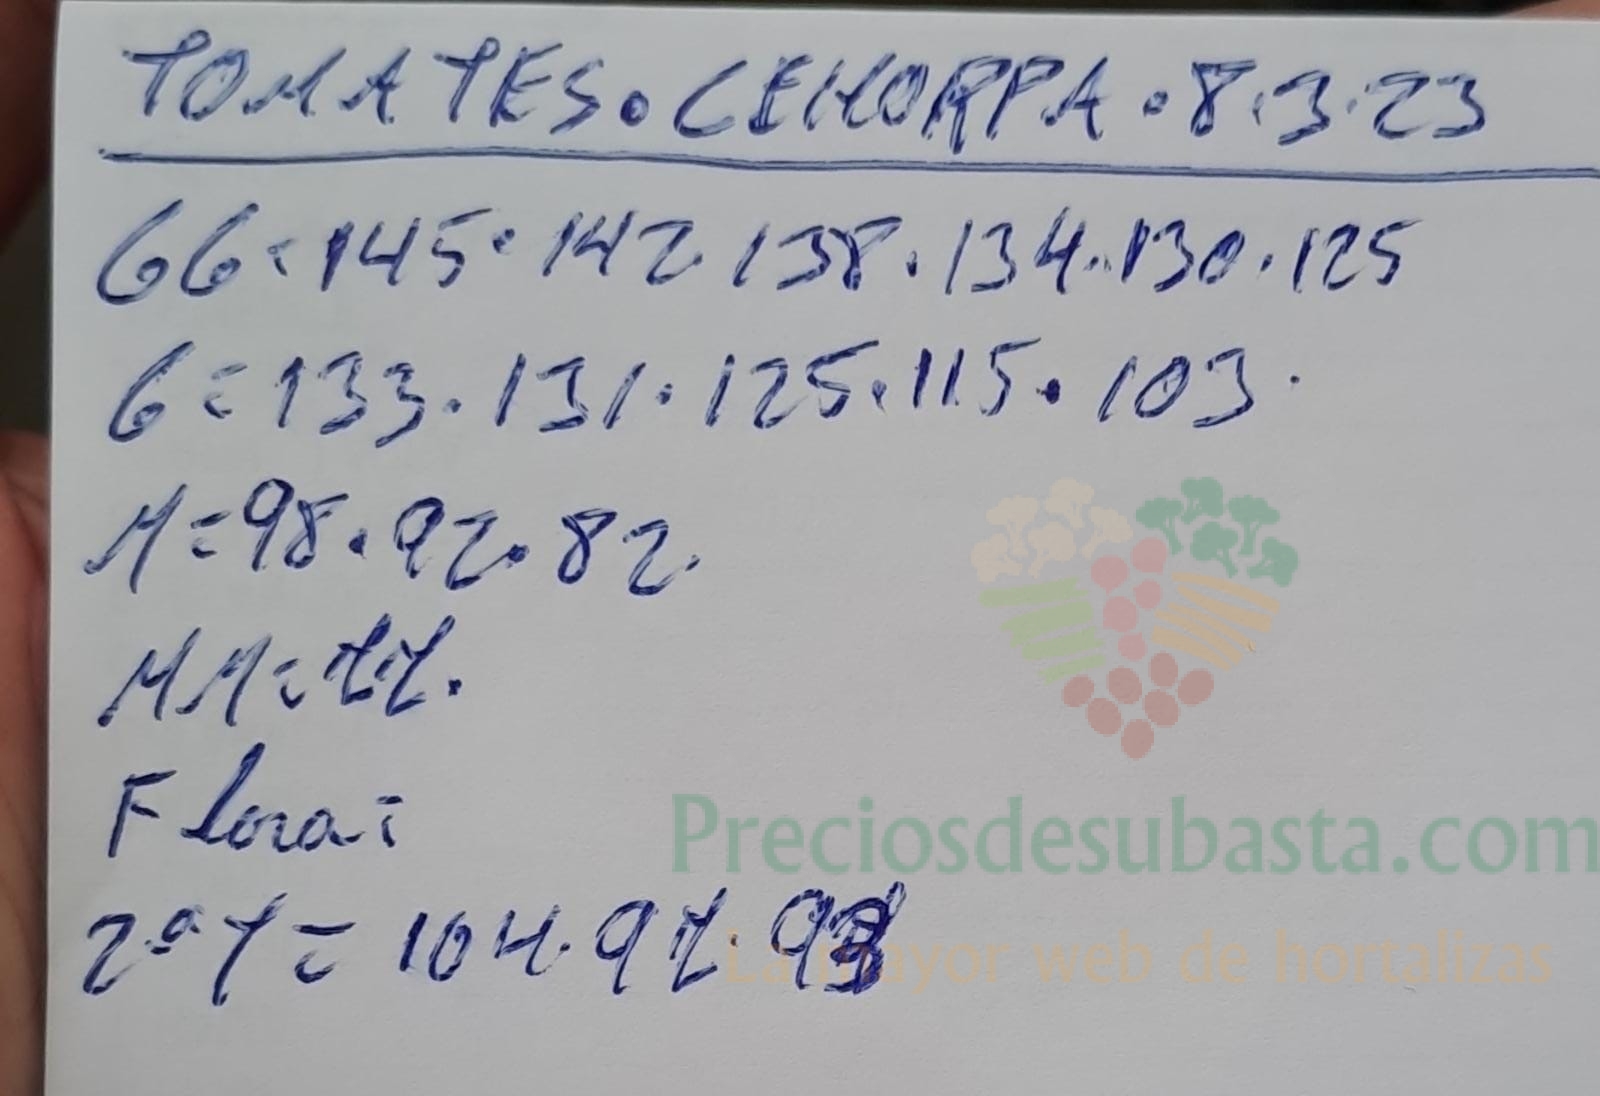 TOMATES. CEHORPA. 8.3.23
GG= 145. 142. 138. 134. 130. 125
G= 133. 131. 125. 115. 103.
M= 98. 92. 82.
MM= 77.
Flora=
Preciosdesubasta.com
2ªT= 104. 97.
La mayor web de hortalizas